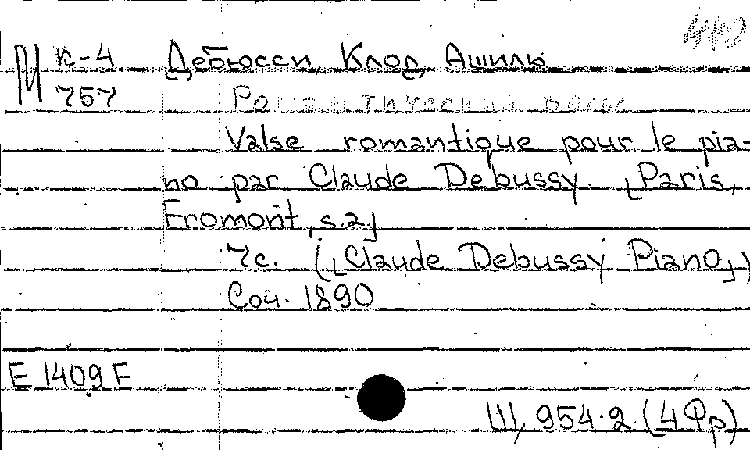 К-4 Дебюсси, Клод Ашиль
757 Романтический вальс
Valse romantique pour le pia-
no par Claude Debussy. [Paris,
Fromont, s.a]
7с. ([Claude Debussy Piano])
Соч. 1890
E 1409 F
Ш, 954.2. (4Фр)